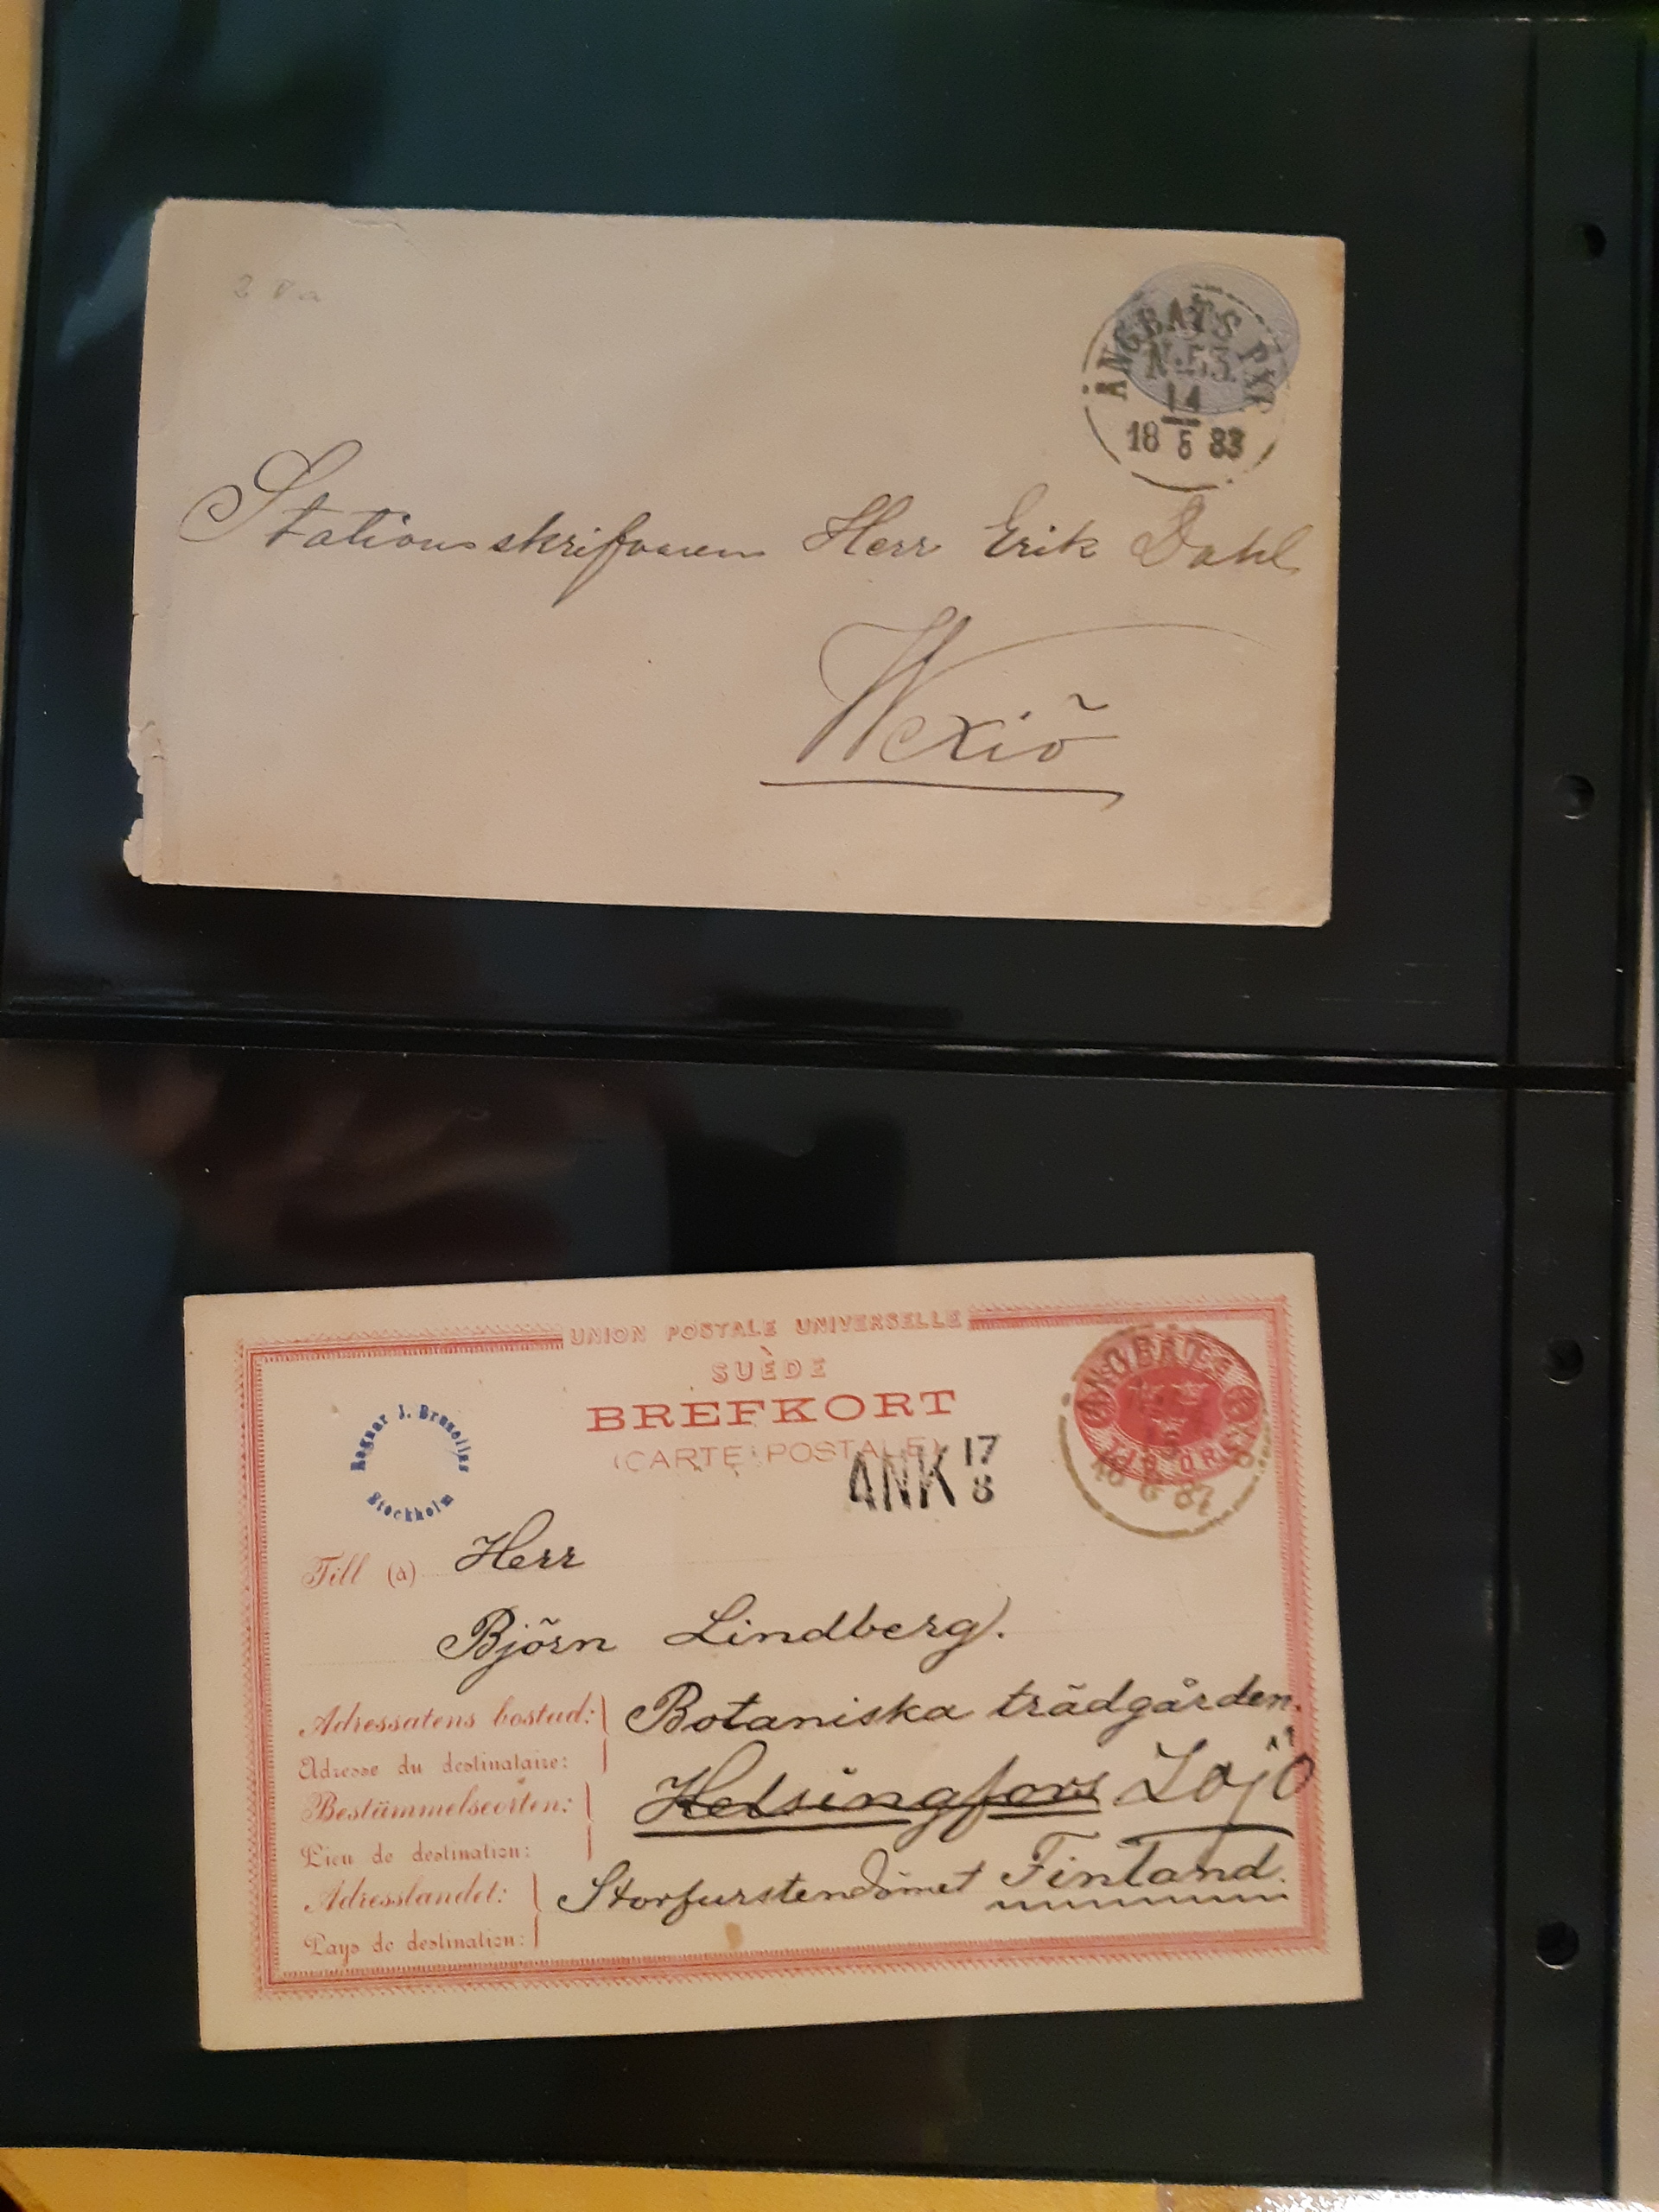 ÅNGBÅTS PXP
N:53.
14
18 6 83
Stationsskrifvaren Herr Erik Dahl
Wexiö
UNION POSTALE UNIVERSELLE
SUÈDE
BREFKORT
(CARTE POSTALE)
ANK 17
8
TIO ÖRE
18 6 87
Ragnar J. Bruzelius
Stockholm
Till (à) Herr
Björn Lindberg.
Adressatens bostad: Botaniska trädgården.
Adresse du destinataire:
Bestämmelseorten: Helsingfors Lojo
Lieu de destination:
Adresslandet: Storfurstendömet Finland.
Pays de destination: